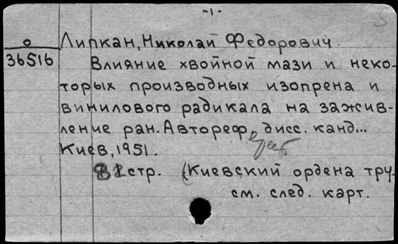 -1-
о
36516
Липкан, Николай Федорович.
Влияние хвойной мази и неко-
торых производных изопрена и
винилового радикала на зажив-
ление ран. Автореф. дисс. канд...
Киев, 1951.
стр. (Киевский ордена тру-
см. след. карт.